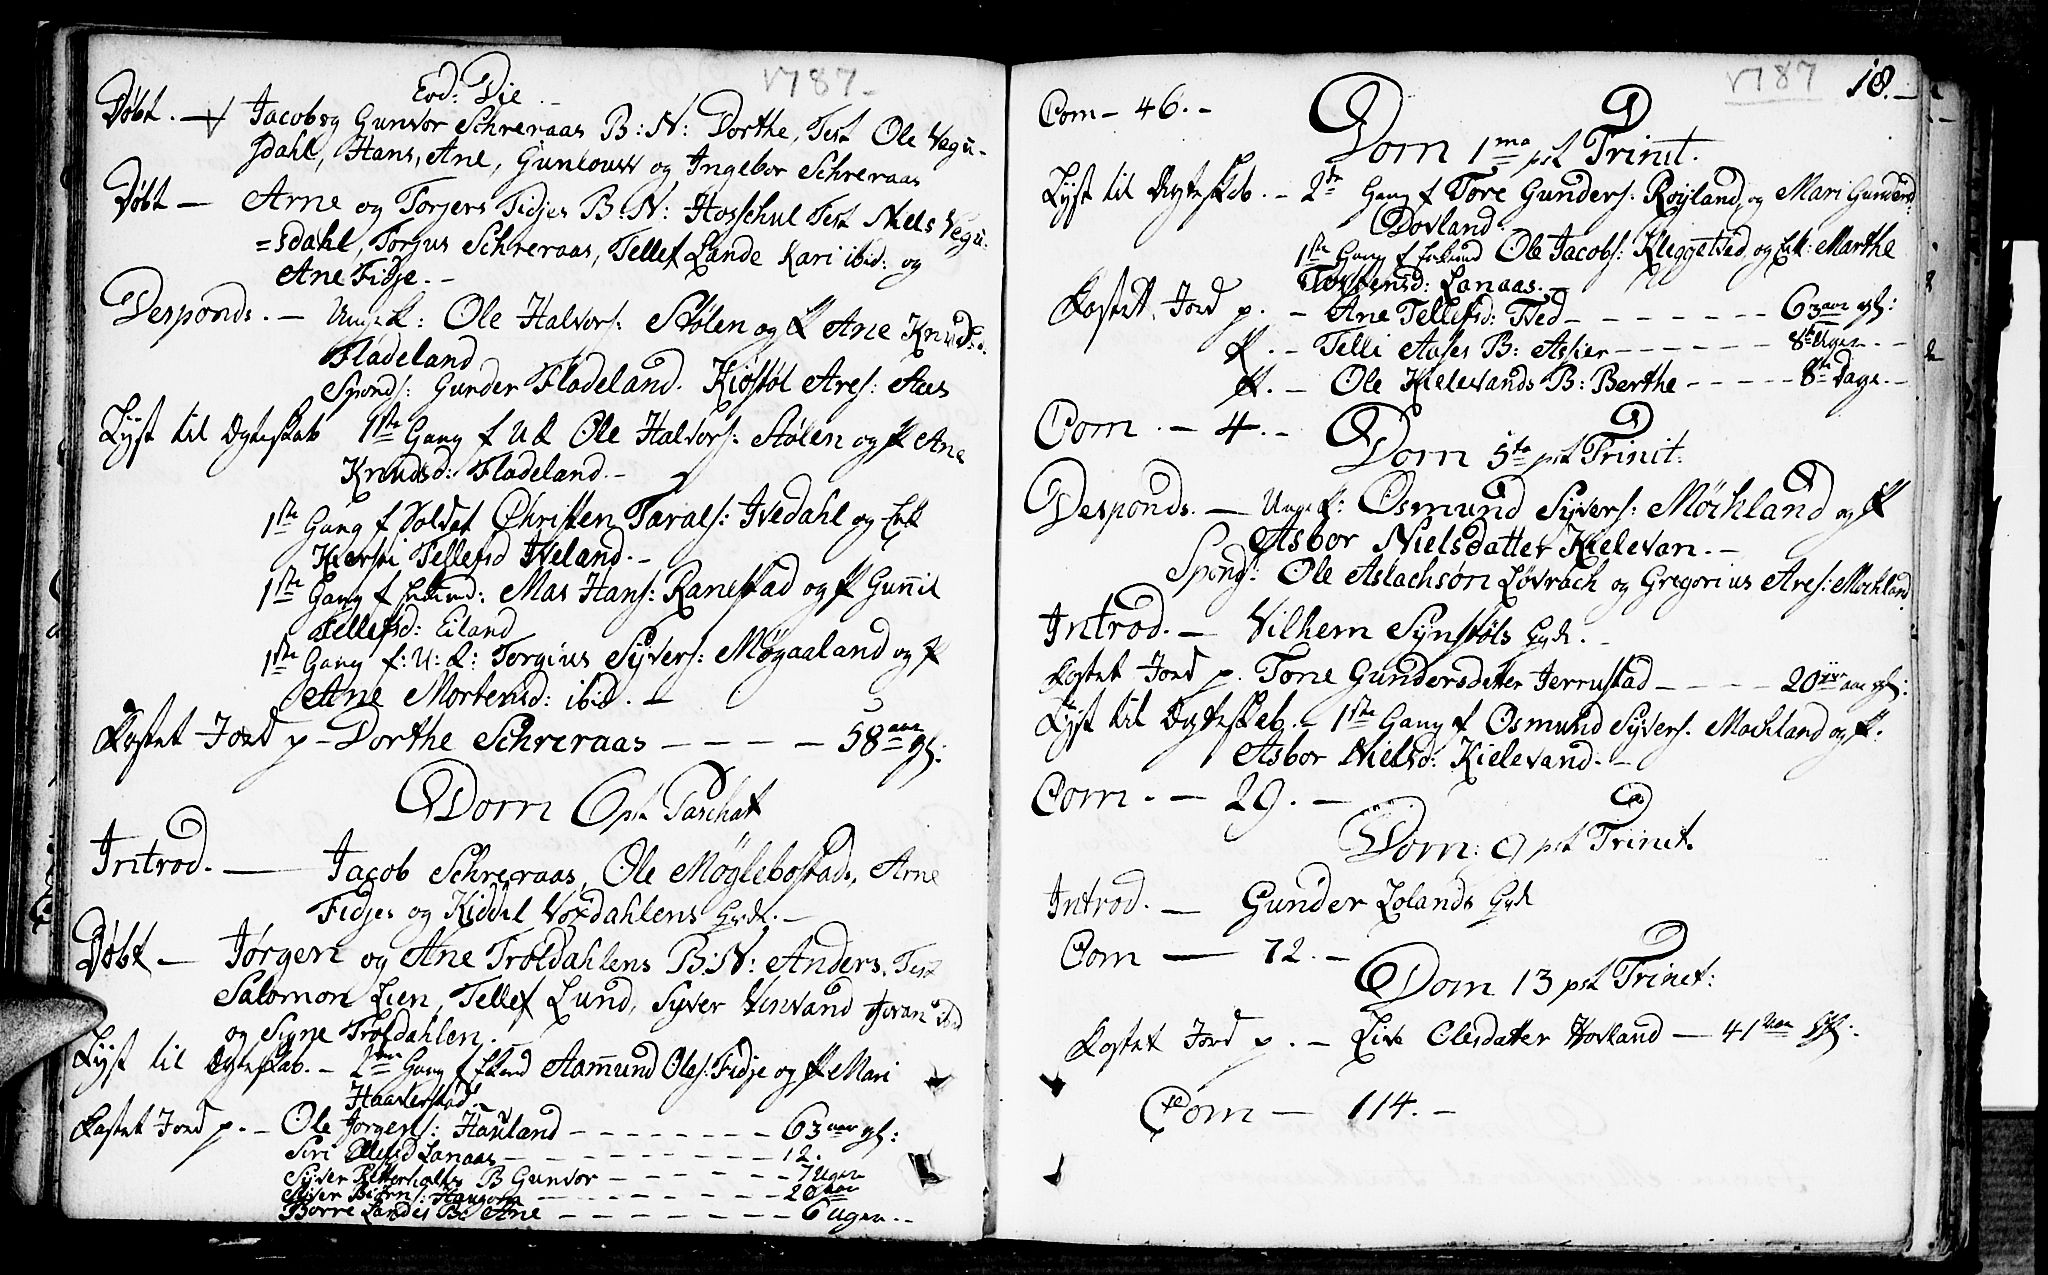 1787
Eod: Die
Døbt. — Jacob og Gunvor Schreraas B: N: Dorthe, Test Ole Vegu-
sdahl, Hans, Ane, Gunlouw og Ingebor Schreraas
Døbt — Arne og Torjers Fidjes B: N: Hosschul Test Niels Vegu-
=sdahl, Torgus Schreraas, Tellef Lande Kari ibid: og
Ane Fidje. —
Desponds. — Unge K: Ole Halvors: Stølen og P Ane Knudsd.
Fladeland
Sponds: Gunder Fladeland. Kiøstøl Ares: Aas
Lyst til Ægteskab 1ste Gang f U K Ole Halvors: Stølen og P Ane
Knudsd: Fladeland. —
1ste Gang f Soldat Christen Tarals: Ivedahl og Enk
Kiersti Tellefsd Iveland. —
1ste Gang f Enkemd: Mas Hans: Ranestad og P Gunnil
Tellefsd: Eiland
1ste Gang f: U: K: Torgius Syvers: Møgaaland og P
Ane Mortensd: ibid. —
Kastet Jord p — Dorthe Schreraas — — — — 58 aar gl:
Dom 6 pst Paschat
Introd. — Jacob Schreraas, Ole Møglebostads, Arne
Fidjes og Kiddil Voxdahlens Hustr. —
Døbt — Jørgen og Ane Troldahlens B: N: Anders. Test
Salomon Lien, Tellef Lund, Syver Vinvand Joran ibd
og Signe Troldahlen.
Lyst til Ægteskab. — 2den Gang f Ekemd Aamund Oles: Fidje og P Mari
Haaverstad.
Kastet Jord p. — Ole Jørgens: Hauland — — — — 63 aar gl:
Siri Ellefsd Lanaas — — — — 12.
Syver Retterholts B Gunvor — — — — 7 Ugen
Syver Biørns: Haugom — — — — 20 aar
Børre Landes B: Ane — — — — 6 Ugen. —
1787 18. —
Com — 46. —
Dom 1ma pst Trinit.
Lyst til Ægteskab. — 2de Gang f Tore Gunders: Røyland, og Mari Gundersd:
Dovland.
1ste Gang f Enkemd Ole Jacobs: Kleggetved og Enk: Marthe
Torstensd: Lanaas. —
Kastet Jord p. — Ane Tellefsd: Tved — — — — 63 aar gl:
P. — Telli Aases B: Assier — — — — 8te Ugen. —
P. — Ole Kielevands B: Berthe — — — — 8te Dage. —
Com. — 4. —
Dom 5te pst Trinit:
Desponds. — Unge K: Osmund Syvers: Møchland og P
Asbor Nielsdatter Kielevan. —
Sponds: Ole Aslachsøn Løvrach og Gregorius Ares: Mochland.
Introd. — Vilhem Synstøls Hustr. —
Kastet Jord p. Tone Gundersdatter Jerrustad — — — — 20 aar gl:
Lyst til Ægteskab. — 1ste Gang f Osmund Syvers. Mochland og P.
Asbor Nielsd: Kielevand. —
Com. — 29. —
Dom: 9 pst Trinit.
Introd. — Gunder Lolands Hustr
Com — 72. —
Dom 13 pst Trinit:
Kastet Jord p. — Live Olesdatter Hovland — 41 aar gl:
Com — 114. —